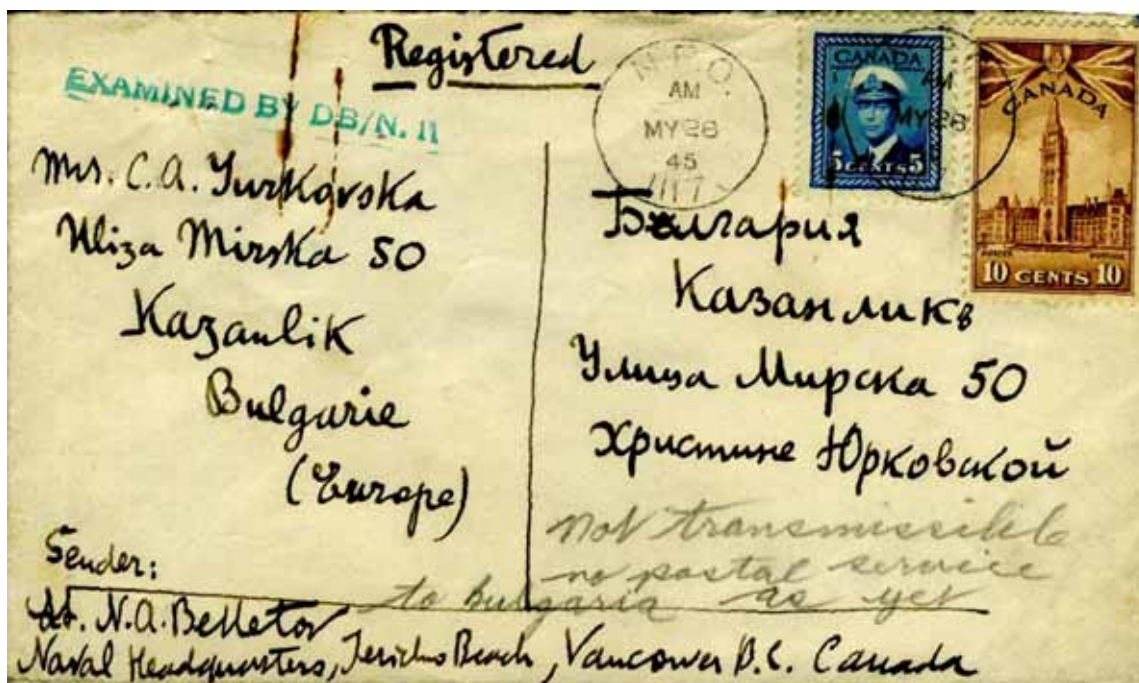 Registered
EXAMINED BY DB/N. 11
N.P.O.
AM
MY 28
45
1117
CANADA
5 CENTS 5
AM
MY 28
CANADA
10 CENTS 10
Mrs. C.A. Yurkovska
Uliza Mirska 50
Kazanlik
Bulgarie
(Europe)
България
Казанликъ
Улица Мирска 50
Христине Юрковской
not transmissible
no postal service
to Bulgaria as yet
Sender:
Lt. N.A. Belletov
Naval Headquarters, Jericho Beach, Vancouver B.C. Canada